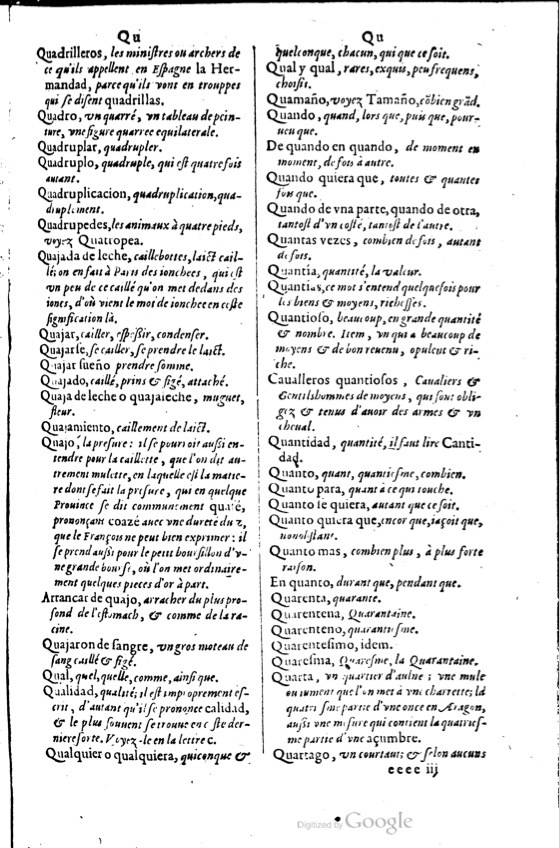 Qu
Quadrilleros, les ministres ou archers de
ce qu'ils appellent en Espagne la Her-
mandad, parce qu'ils vont en trouppes
qui se disent quadrillas.
Quadro, vn quarré, vn tableau de pein-
ture, vne figure quarree equilaterale.
Quadruplar, quadrupler.
Quadruplo, quadruple, qui est quatre fois
autant.
Quadruplicacion, quadruplication, qua-
druplement.
Quadrupedes, les animaux à quatre pieds,
voyez Quatropea.
Quajada de leche, caillebottes, laict cail-
lé; on en fait à Paris des ionchees, qui est
vn peu de ce caillé qu'on met dedans des
iones, d'où vient le mot de ionchee en ceste
signification là.
Quajar, cailler, espessir, condenser.
Quajarse, se cailler, se prendre le laict.
Quajar sueño prendre somme.
Quajado, caillé, prins & figé, attaché.
Quaja de leche o quajaleche, muguet,
fleur.
Quajamiento, caillement de laict.
Quajo, la presure: il se pourroit aussi en-
tendre pour la caillette, que l'on dit au-
trement mulette, en laquelle est la matie-
re dont se fait la presure, qui en quelque
Prouince se dit communement quasé,
prononçant coazé auec vne dureté du z,
que le François ne peut bien exprimer: il
se prend aussi pour le petit boursillon d'v-
ne grande bourse, où l'on met ordinaire-
ment quelques pieces d'or à part.
Arrancar de quajo, arracher du plus pro-
fond de l'estomach, & comme de la ra-
cine.
Quajaron de sangre, vn gros moteau de
sang caillé & figé.
Qual, quel, quelle, comme, ainsi que.
Qualidad, qualité; il est improprement es-
crit, d'autant qu'il se prononce calidad,
& le plus souuent se trouue en ceste der-
niere sorte. Voyez-le en la lettre c.
Qualquier o qualquiera, quiconque &
Qu
quelconque, chacun, qui que ce soit.
Qual y qual, rares, exquis, peu frequens,
choisis.
Quamaño, voyez Tamaño, cõbien grãd.
Quando, quand, lors que, puis que, pour-
ueu que.
De quando en quando, de moment en
moment, de fois à autre.
Quando quiera que, toutes & quantes
fois que.
Quando de vna parte, quando de otra,
tantost d'vn costé, tantost de l'autre.
Quantas vezes, combien de fois, autant
de fois.
Quantia, quantité, la valeur.
Quantias, ce mot s'entend quelquesfois pour
les biens & moyens, richesses.
Quantioso, beaucoup, en grande quantité
& nombre. Item, vn qui a beaucoup de
moyens & de bon reuenu, opulent & ri-
che.
Caualleros quantiosos, Caualiers &
Gentilshommes de moyens, qui sont obli-
gez & tenus d'auoir des armes & vn
cheual.
Quantidad, quantité, il faut lire Canti-
dad.
Quanto, quant, quantiesme, combien.
Quanto para, quant à ce qui touche.
Quanto se quiera, autant que ce soit.
Quanto quiera que, encor que, iaçoit que,
nonobstant.
Quanto mas, combien plus, à plus forte
raison.
En quanto, durant que, pendant que.
Quarenta, quarante.
Quarentena, Quarantaine.
Quarenteno, quarantiesme.
Quarentesimo, idem.
Quaresma, Quaresme, la Quarantaine.
Quarta, vn quartier d'aulne; vne mule
ou iument que l'on met à vne charrette; la
quatriesme partie d'vne once en Aragon,
aussi vne mesure qui contient la quatries-
me partie d'vne açumbre.
Quartago, vn courtaut; & selon aucuns
eeee iij
Digitized by Google